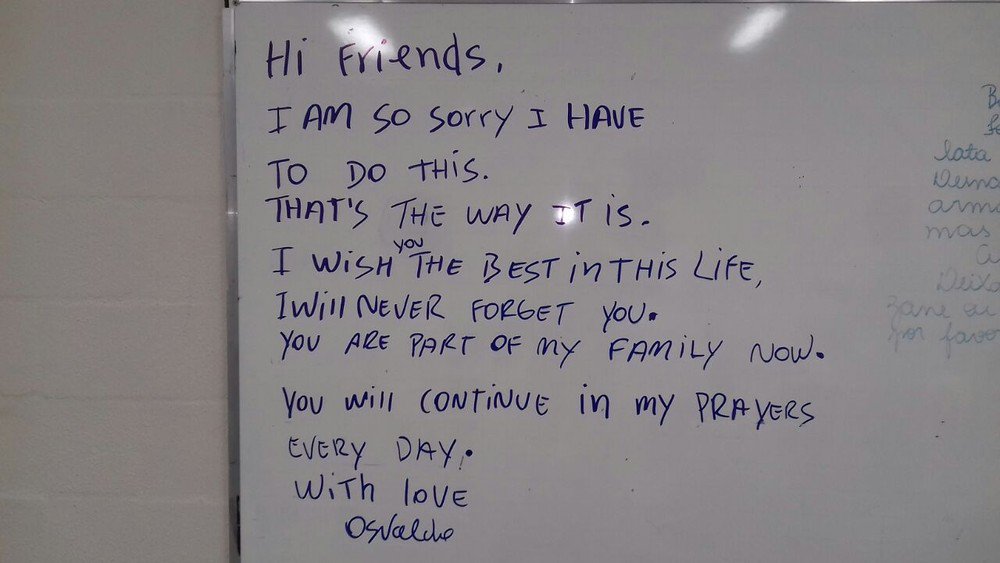 Hi Friends,
I AM SO SORRY I HAVE
TO DO THIS.
THAT'S THE WAY IT IS.
I WISH you THE BEST in THIS LIFE,
I Will NEVER FORGET YOU.
YOU ARE PART OF MY FAMILY NOW.
YOU will CONTINUE in MY PRAYERS
EVERY DAY.
WiTh lOVE
Osvaldo
lata
mas
por favo